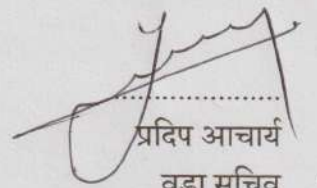 प्रदिप आचार्य
वडा सचिव